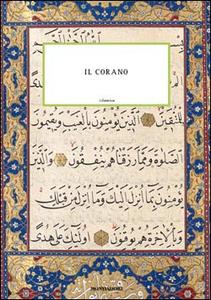 IL CORANO
islamica
لِلْمُتَّقِينَ الَّذِينَ يُؤْمِنُونَ بِالْغَيْبِ وَيُقِيمُونَ
الصَّلٰوةَ وَمِمَّا رَزَقْنَاهُمْ يُنْفِقُونَ وَالَّذِينَ
يُؤْمِنُونَ بِمَا أُنْزِلَ إِلَيْكَ وَمَا أُنْزِلَ مِنْ قَبْلِكَ
وَبِالْآخِرَةِ هُمْ يُوقِنُونَ أُولٰئِكَ عَلَى هُدًى
MONDADORI